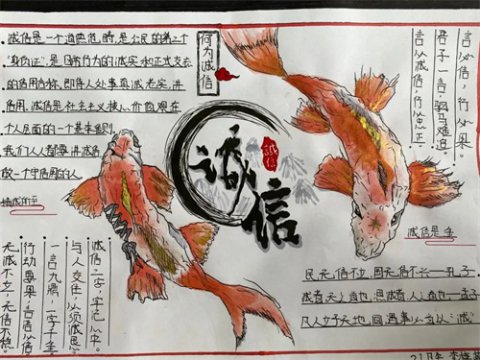 诚信是一个道德范畴,是公民的第二个
"身份证",是日常行为的诚实和正式交流
的信用合称,即待人处事真诚、老实、讲
信用,诚信是社会主义核心价值观在
个人层面的一个基本准则。
我们人人都要讲诚信
做一个守信用的人
何为诚信
言必信,行必果。
君子一言,驷马难追。
言必诚信,行必忠正。
诚信
诚信
诚信二字,牢记心中。
与人交往,必须诚恳。
一言九鼎,一字千金
行动要果,言语必信
无诚不立,无信不稳。
民无信不立,国无信不兴——孔子
诚者,天之道也,思诚者,人之道也——孟子
凡人立于天地间,遇事必立以"诚"